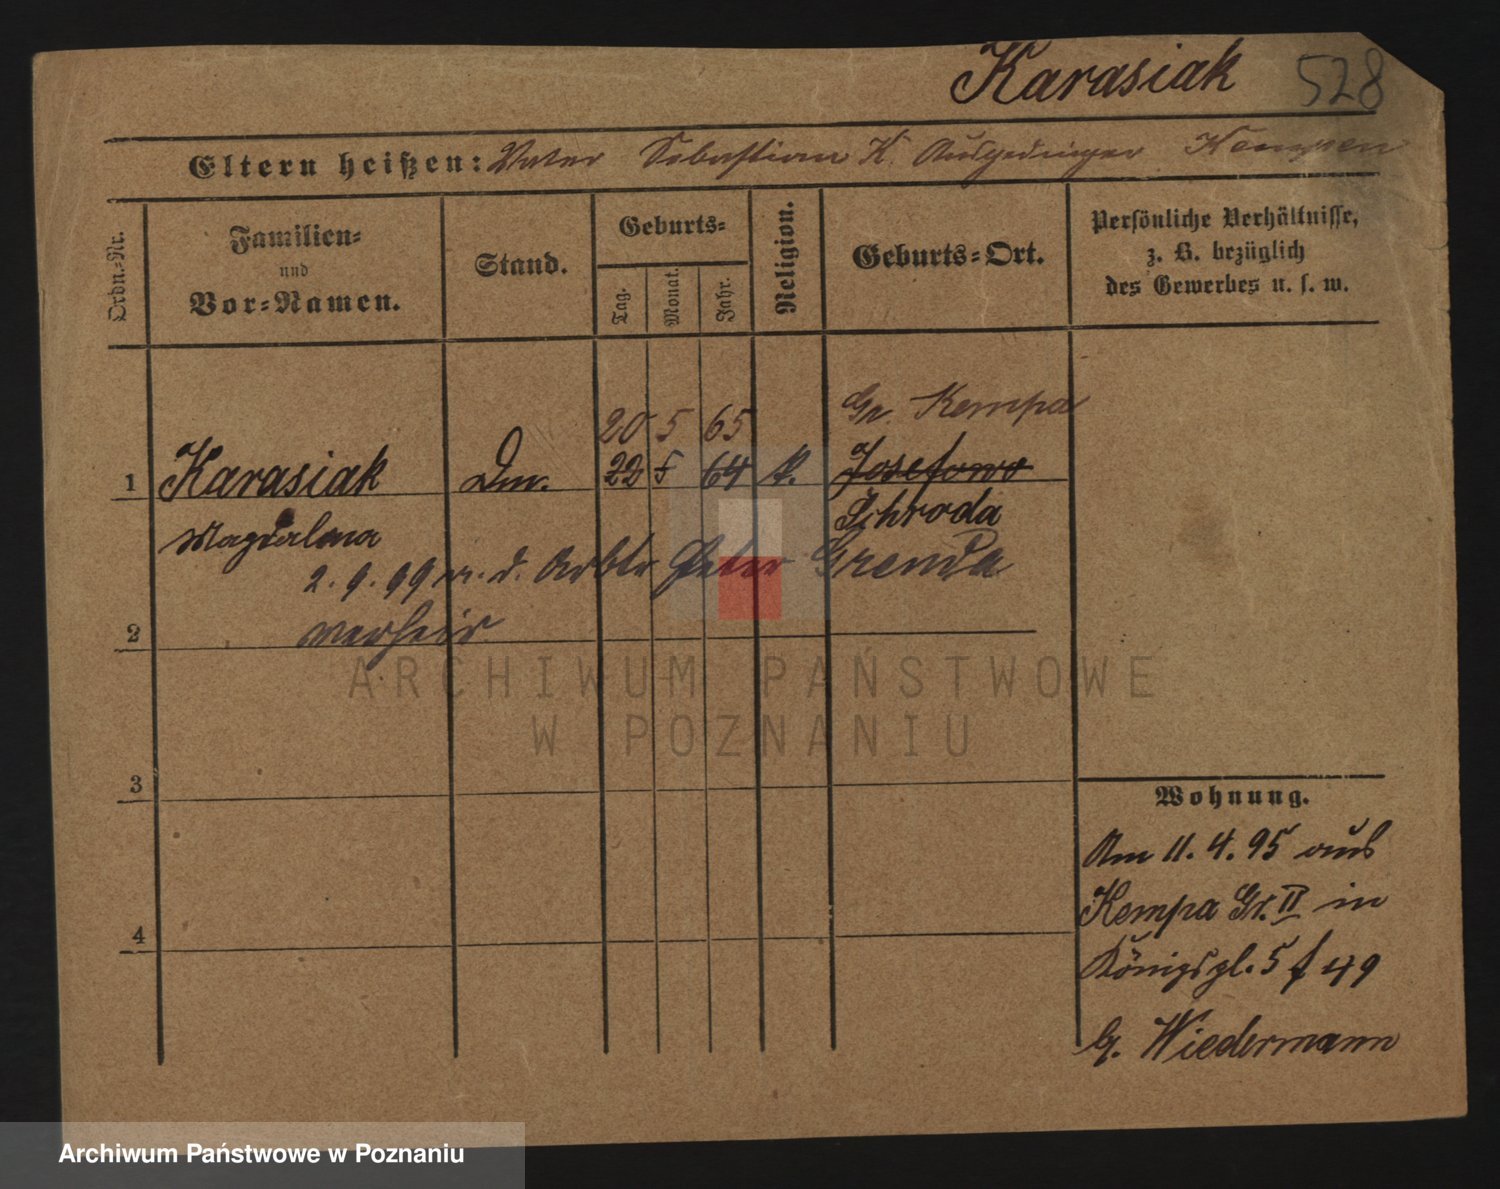 Karasiak 528
Eltern heißen: Vater Sebastian K. Ausgedinger Kempen
Ordn.-Nr.
Familien-
und
Vor-Namen.
Stand.
Geburts-
Tag.
Monat.
Jahr.
Religion.
Geburts-Ort.
Persönliche Verhältnisse,
z. B. bezüglich
des Gewerbes u. s. w.
20 5 65 Gr. Kempa
1 Karasiak Dm. 22 5 64 k. Josefowo
Magdalena Schroda
2. 9. 99 m. d. Arbtr Peter Grenda
2 verheir
ARCHIWUM PAŃSTWOWE
W POZNANIU
3
Wohnung.
Am 11. 4. 95 aus
Kempa Gr. II in
4
Königspl. 5 f 49
b. Wiedermann
Archiwum Państwowe w Poznaniu